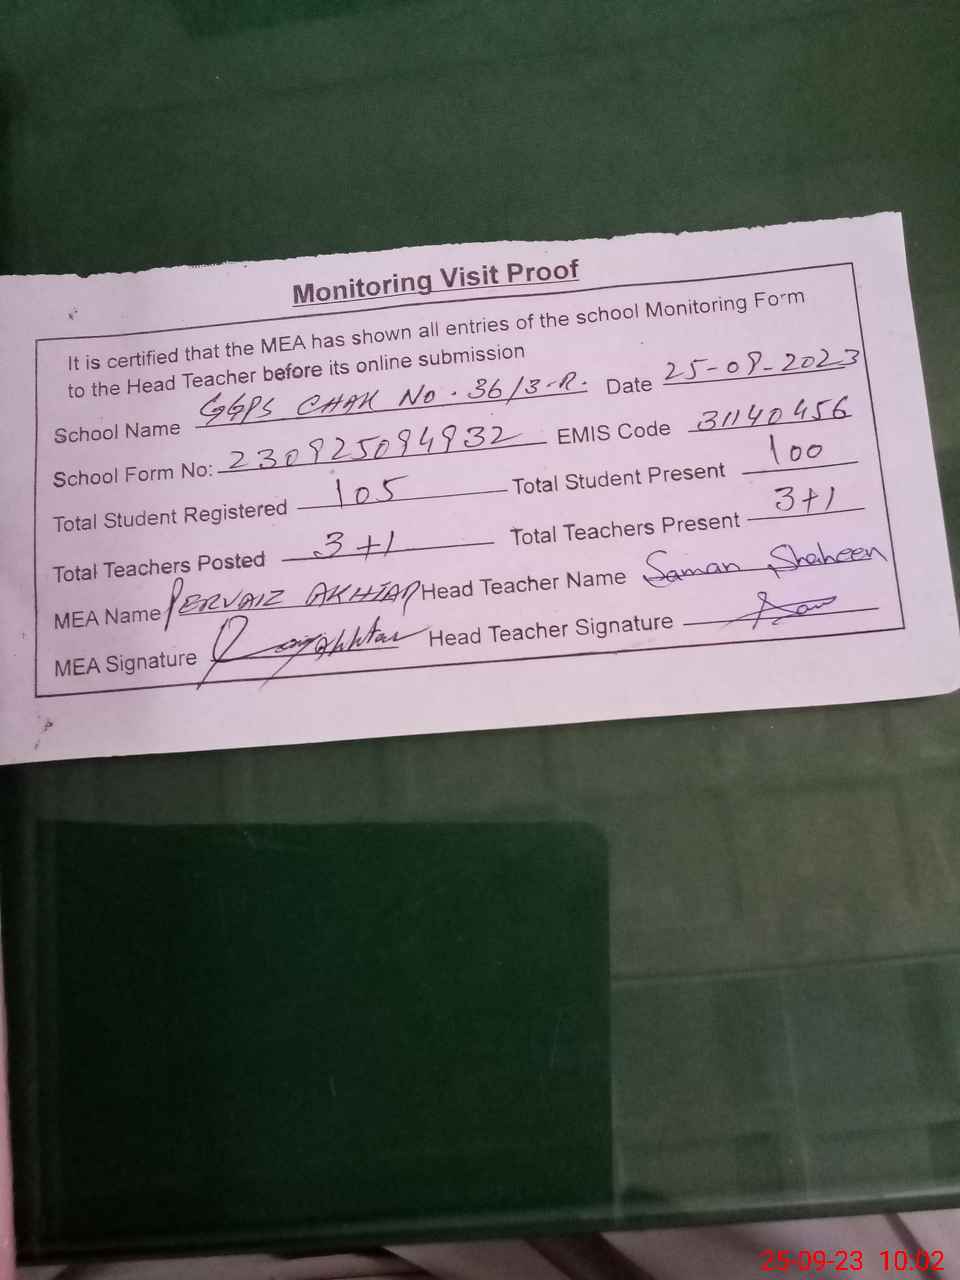 Monitoring Visit Proof
It is certified that the MEA has shown all entries of the school Monitoring Form
to the Head Teacher before its online submission
School Name GGPS CHAK No. 36/3-R. Date 25-09-2023
School Form No: 230925094932 EMIS Code 31140456
Total Student Registered 105 Total Student Present 100
Total Teachers Posted 3+1 Total Teachers Present 3+1
MEA Name PERVAIZ AKHTAR Head Teacher Name Saman Shaheen
MEA Signature Head Teacher Signature
25-09-23 10:02